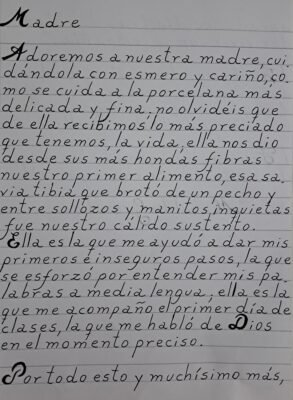 Madre
Adoremos a nuestra madre, cui.
dándola con esmero y cariño, co.
mo se cuida a la porcelana más
delicada y fina. no olvidéis que
de ella recibimos lo más preciado
que tenemos, la vida, ella nos dio
desde sus más hondas fibras
nuestro primer alimento, esa sa.
via tibia que brotó de un pecho y
entre sollozos y manitos inquietas
fue nuestro cálido sustento.
Ella es la que me ayudó a dar mis
primeros é inseguros pasos, la que
se esforzó por entender mis pa.
labras a media lengua, ella es la
que me acompaño el primer día de
clases, la que me habló de Dios
en el momento preciso.
Por todo esto y muchísimo más,